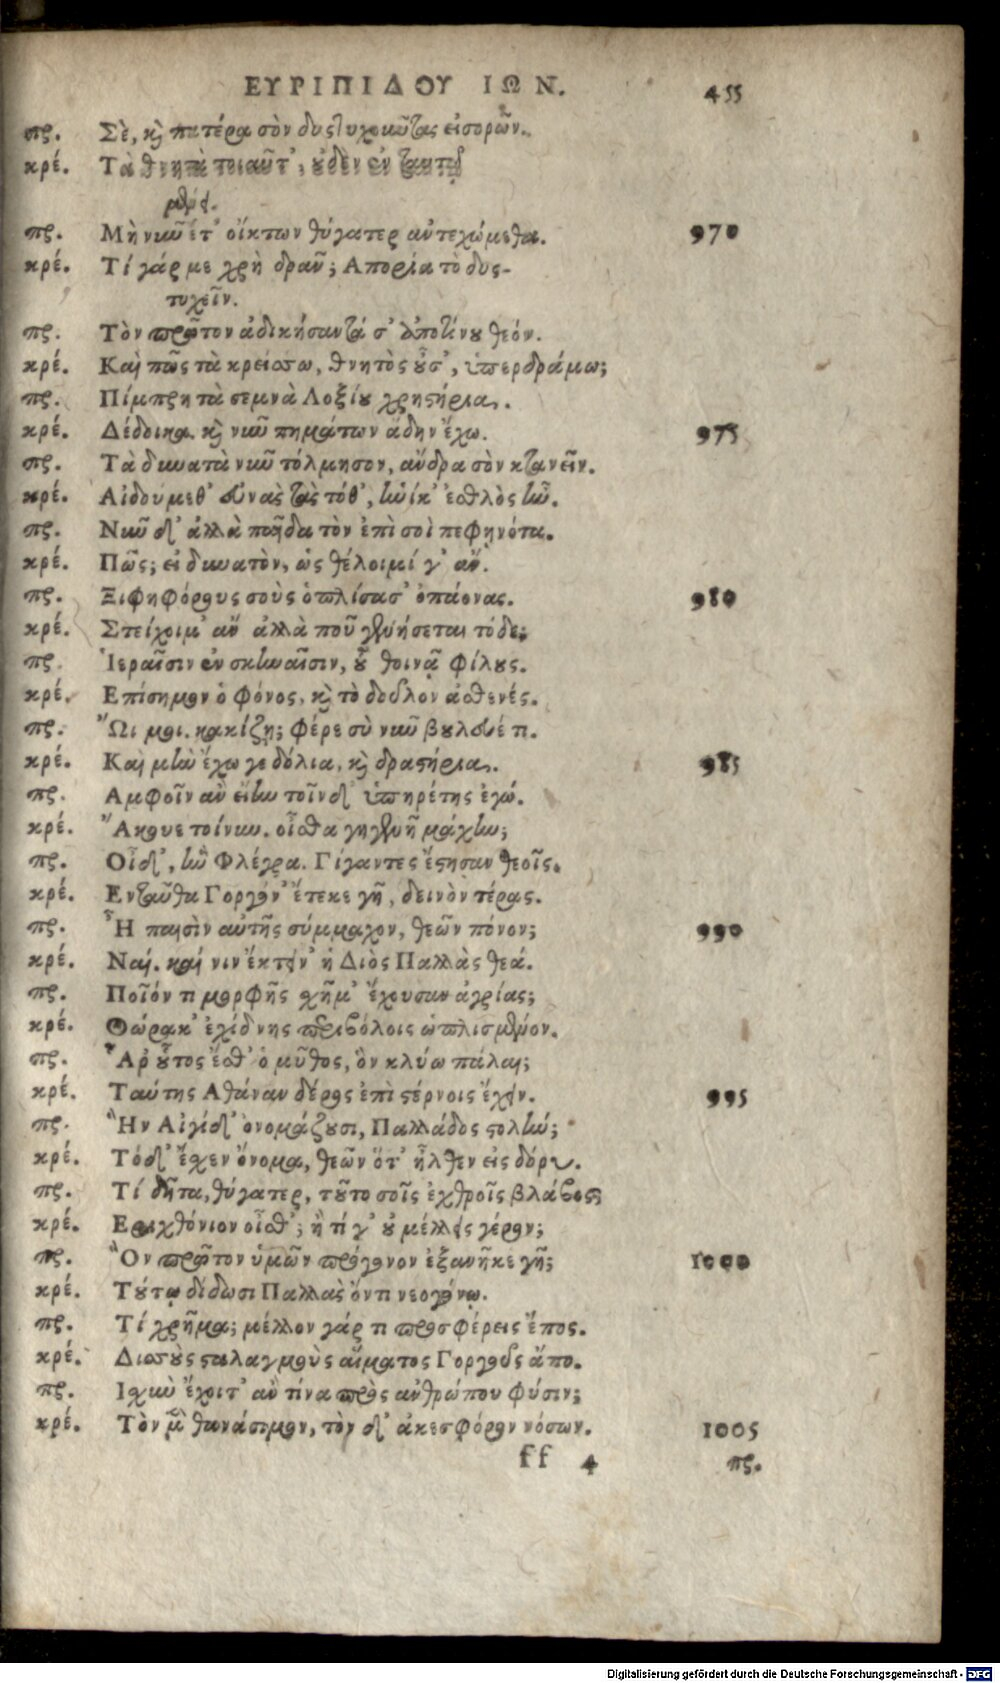 ΕΥΡΙΠΙΔΟΥ ΙΩΝ. 455
πρ. Σὲ, καὶ πατέρα σὸν δυστυχοῦντας εἰσορῶν.
κρέ. Τὰ θνητὰ τοιαῦτ', οὐδὲν ἐν ταυτῷ
μένει.
πρ. Μὴ νῦν ἔτ' οἴκτων θύγατερ ἀντεχώμεθα. 970
κρέ. Τί γάρ με χρὴ δρᾶν; Απορία τὸ δυς-
τυχεῖν.
πρ. Τὸν πρῶτον ἀδικήσαντά σ' ἀποτίνου θεόν.
κρέ. Καὶ πῶς τὰ κρείσσω, θνητὸς οὖσ', ὑπερδράμω;
πρ. Πίμπρη τὰ σεμνὰ Λοξίου χρηστήρια.
κρέ. Δέδοικα. καὶ νῦν πημάτων ἄδην ἔχω. 975
πρ. Τὰ δυνατὰ νῦν τόλμησον, ἄνδρα σὸν κτανεῖν.
κρέ. Αἰδούμεθ' εὐνὰς τὰς τόθ', ἡνίκ' ἐσθλὸς ἦν.
πρ. Νῦν δ' ἀλλὰ παῖδα τὸν ἐπὶ σοὶ πεφηνότα.
κρέ. Πῶς; εἰ δυνατὸν, ὡς θέλοιμί γ' ἄν.
πρ. Ξιφηφόρους σοὺς ὁπλίσασ' ὀπάονας. 980
κρέ. Στείχοιμ' ἂν ἀλλὰ ποῦ γενήσεται τόδε;
πρ. Ἱεραῖσιν ἐν σκηναῖσιν, οὗ θοινᾷ φίλους.
κρέ. Επίσημον ὁ φόνος, καὶ τὸ δοῦλον ἀσθενές.
πρ. Ὤι μοι. κακίζῃ; φέρε σὺ νῦν βούλευέ τι.
κρέ. Καὶ μὴν ἔχω γε δόλια, καὶ δραστήρια. 985
πρ. Αμφοῖν ἂν εἴην τοῖνδ' ὑπηρέτης ἐγώ.
κρέ. Ἄκουε τοίνυν. οἶσθα γηγενῆ μάχην;
πρ. Οἶδ', ἣν Φλέγρα. Γίγαντες ἔστησαν θεοῖς.
κρέ. Ενταῦθα Γοργόν' ἔτεκε γῆ, δεινὸν τέρας.
πρ. Ἦ παισὶν αὐτῆς σύμμαχον, θεῶν πόνον; 990
κρέ. Ναί. καί νιν ἔκτειν' ἡ Διὸς Παλλὰς θεά.
πρ. Ποῖόν τι μορφῆς σχῆμ' ἔχουσαν ἀγρίας;
κρέ. Θώρακ' ἐχίδνης περιβόλοις ὡπλισμένον.
πρ. Ἆρ οὗτος ἔσθ' ὁ μῦθος, ὃν κλύω πάλαι;
κρέ. Ταύτης Αθάναν δέρος ἐπὶ στέρνοις ἔχειν. 995
πρ. Ἣν Αἰγίδ' ὀνομάζουσι, Παλλάδος στολήν;
κρέ. Τόδ' ἔσχεν ὄνομα, θεῶν ὅτ' ἦλθεν εἰς δόρυ.
πρ. Τί δῆτα, θύγατερ, τοῦτο σοῖς ἐχθροῖς βλάβος;
κρέ. Εριχθόνιον οἶσθ'; ἢ τί γ' οὐ μέλλεις γέρον;
πρ. Ὃν πρῶτον ὑμῶν πρόγονον ἐξανῆκε γῆ; 1000
κρέ. Τούτῳ δίδωσι Παλλὰς ὄντι νεογόνῳ.
πρ. Τί χρῆμα; μέλλον γάρ τι προσφέρεις ἔπος.
κρέ. Δισσοὺς σταλαγμοὺς αἵματος Γοργοῦς ἄπο.
πρ. Ισχὺν ἔχοιτ' ἂν τίνα πρὸς ἀνθρώπου φύσιν;
κρέ. Τὸν μὲν θανάσιμον, τὸν δ' ἀκεσφόρον νόσων. 1005
ff 4 πρ.
Digitalisierung gefördert durch die Deutsche Forschungsgemeinschaft - DFG